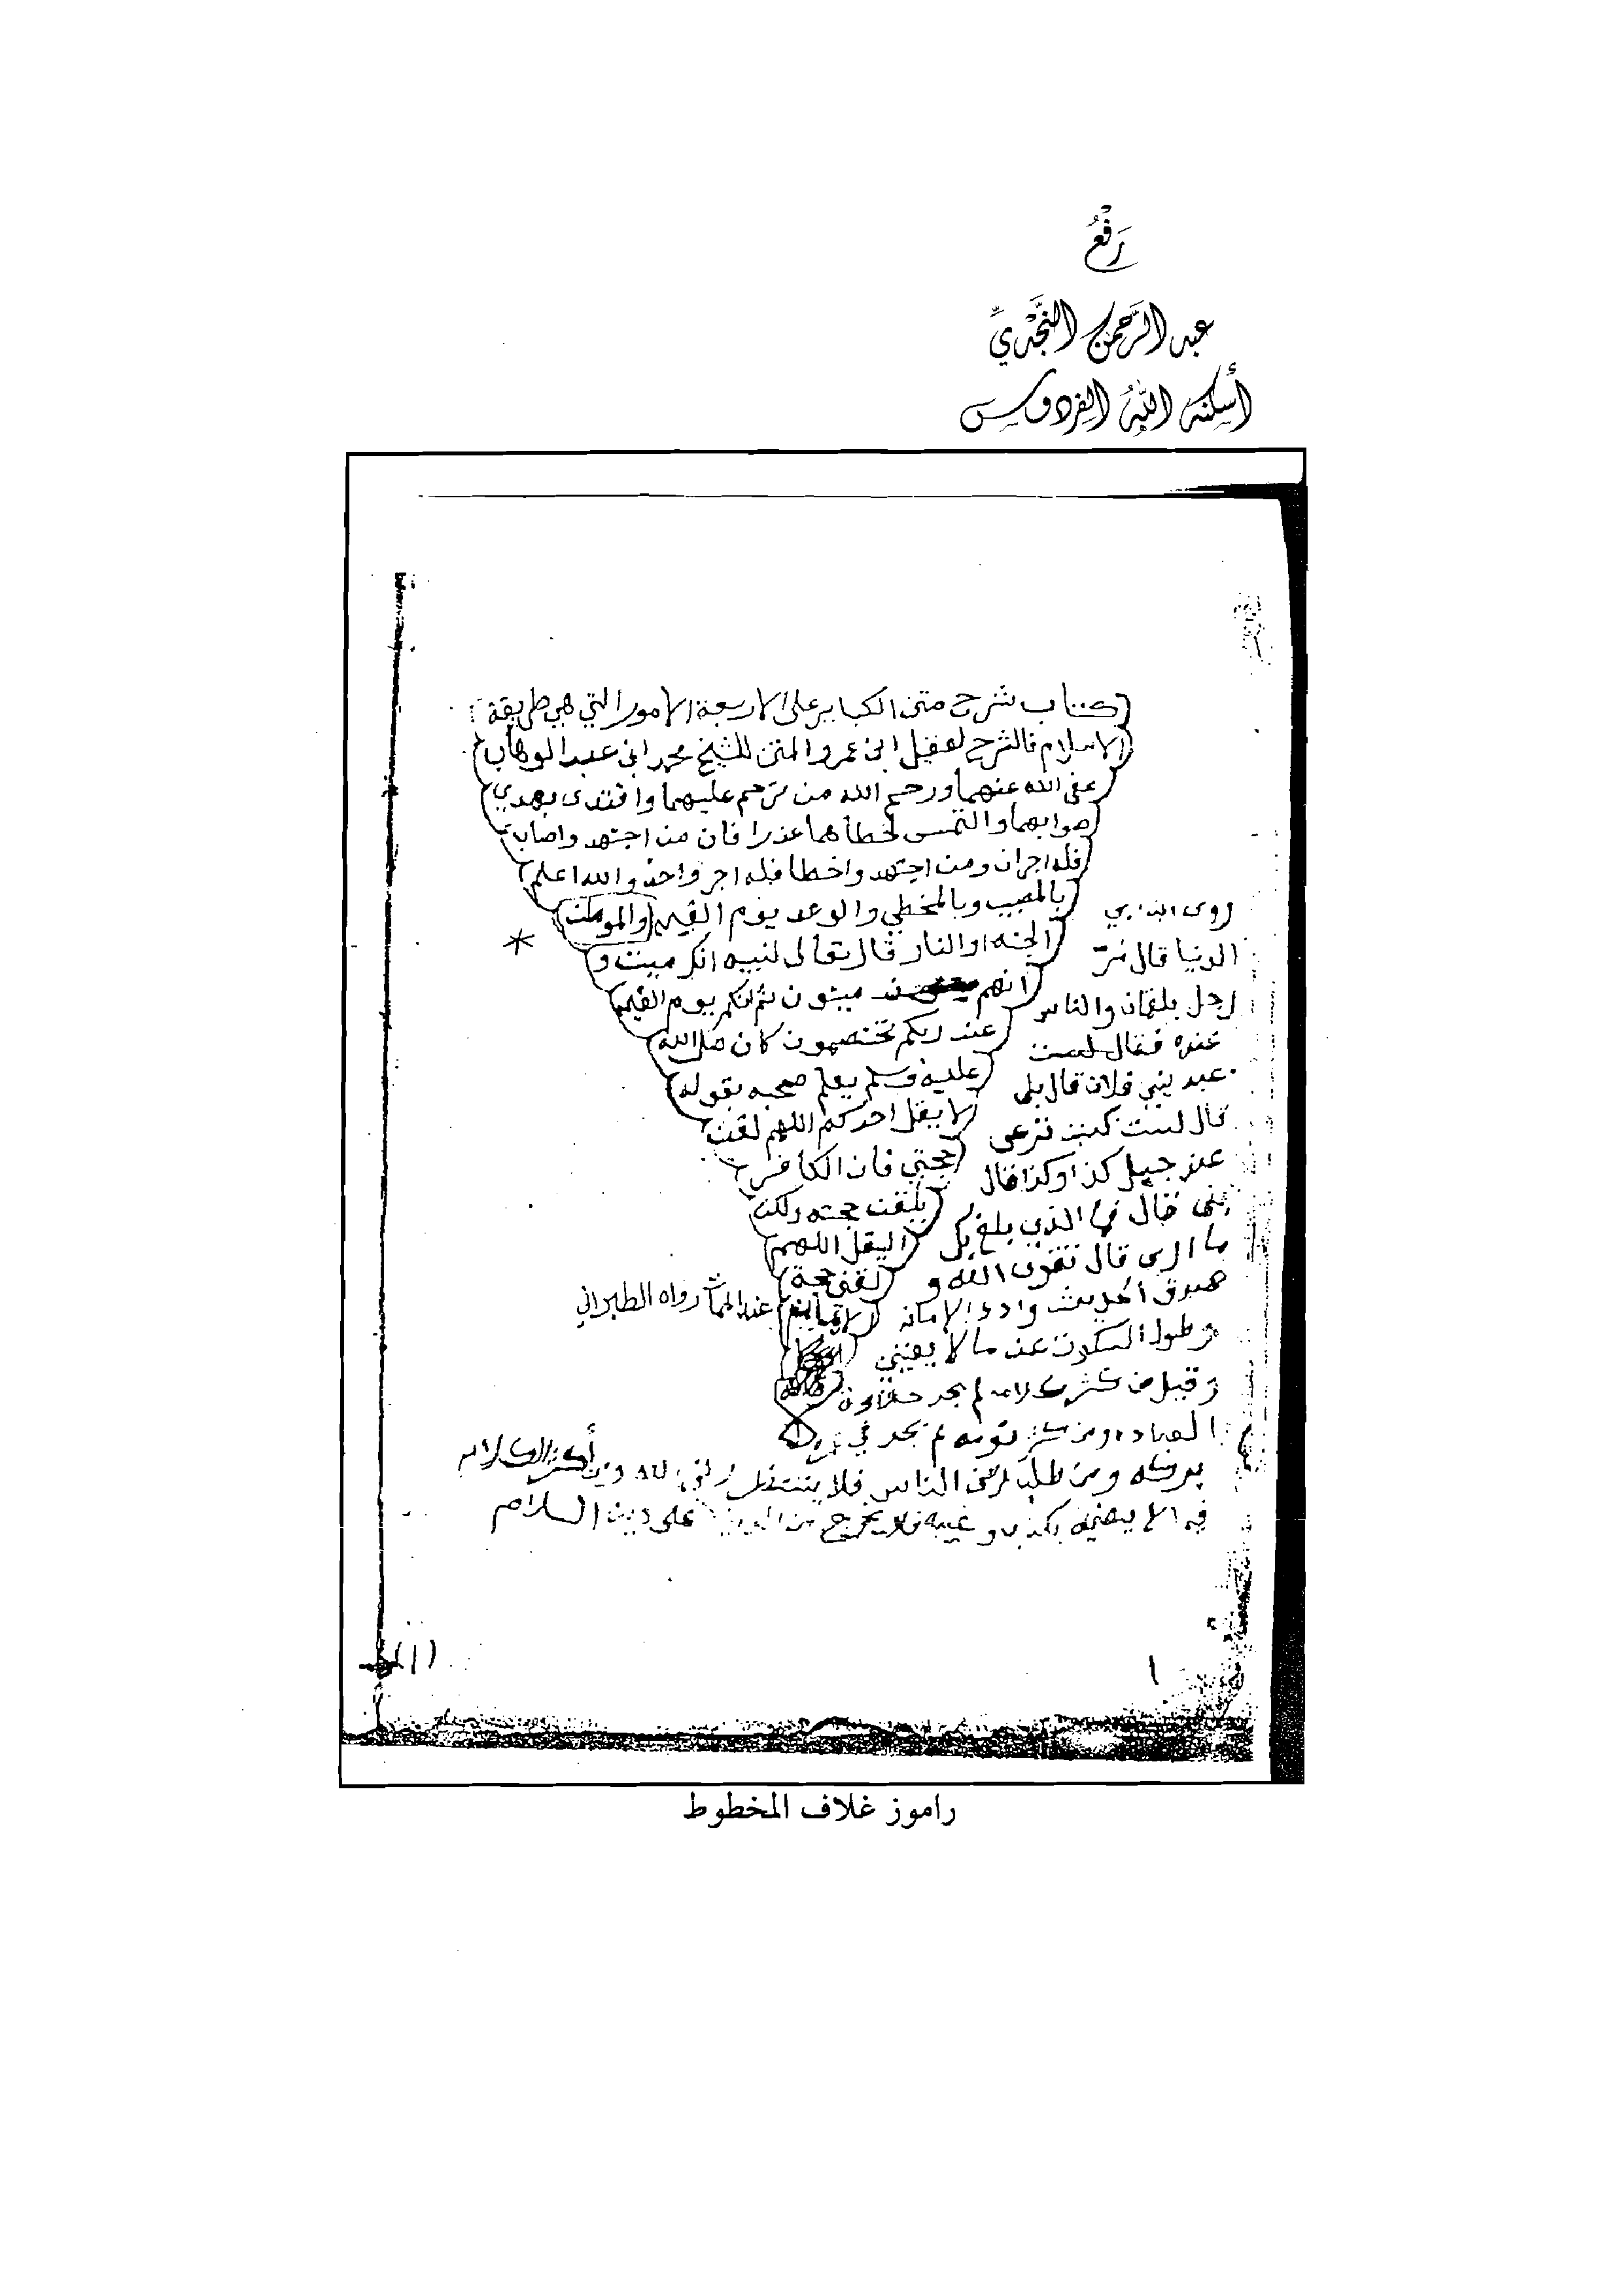 رَفْعُ
عبد الرَّحمن النَّجْديِّ
أسكنه اللهُ الفردوس
كتاب شرح متن الكباير على الاربعة الامور التي هي طريقة
الاسلام فالشرح لعقيل ابن عمر والمتن للشيخ محمد ابن عبد الوهاب
عفى الله عنهما ورحم الله من ترحم عليهما واقتدى بهدي
صوابهما والتمس لخطأهما عذرا فان من اجتهد واصاب
فله اجران ومن اجتهد واخطا فله اجر واحد والله اعلم
بالمصيب وبالمخطي والوعد يوم القيمه والموطن
الجنه او النار قال تعالى لنبيه انك ميت و
انهم ميتون ثم انكم يوم القيمه
عند ربكم تختصمون كان صلى الله
عليه وسلم يعلم صحبه بقوله
لا يقل احدكم اللهم لقني
حجتي فان الكافر
يلقن حجته ولكن
اليقل اللهم
لقني حجة
الايمان عند الممات رواه الطبراني
روى ابن ابي
الدنيا قال مر
رجل بلقمان والناس
عنده فقال لست
عبد بني فلان قال بلى
قال لست كنت ترعى
عند جبل كذا وكذا قال
بلى قال فما الذي بلغ بك
ما ارى قال تقوى الله و
صدق الحديث وادا الامانه
وطول السكوت عن ما لا يعنيني
وقيل من كثر كلامه لم يجد حلاوة
العباده ومن كثر نومه لم يجد في
بركه ومن طلب رضى الناس فلا ينتظر رضى الله ومن أكثر الكلام
في الا يعنيه بكذب وغيبه فلا يخرج من الدنيا على دين السلام
(١)
١
راموز غلاف المخطوط